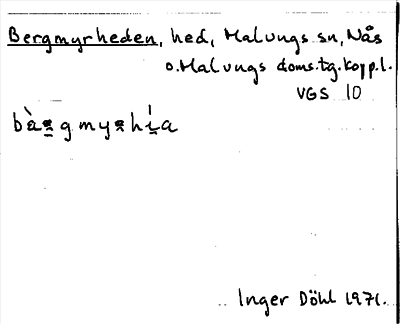 Bergmyrheden, hed, Malungs sn, Nås
o. Malungs doms.tg. kopp.l.
VGS 10
Inger Döhl 1971.